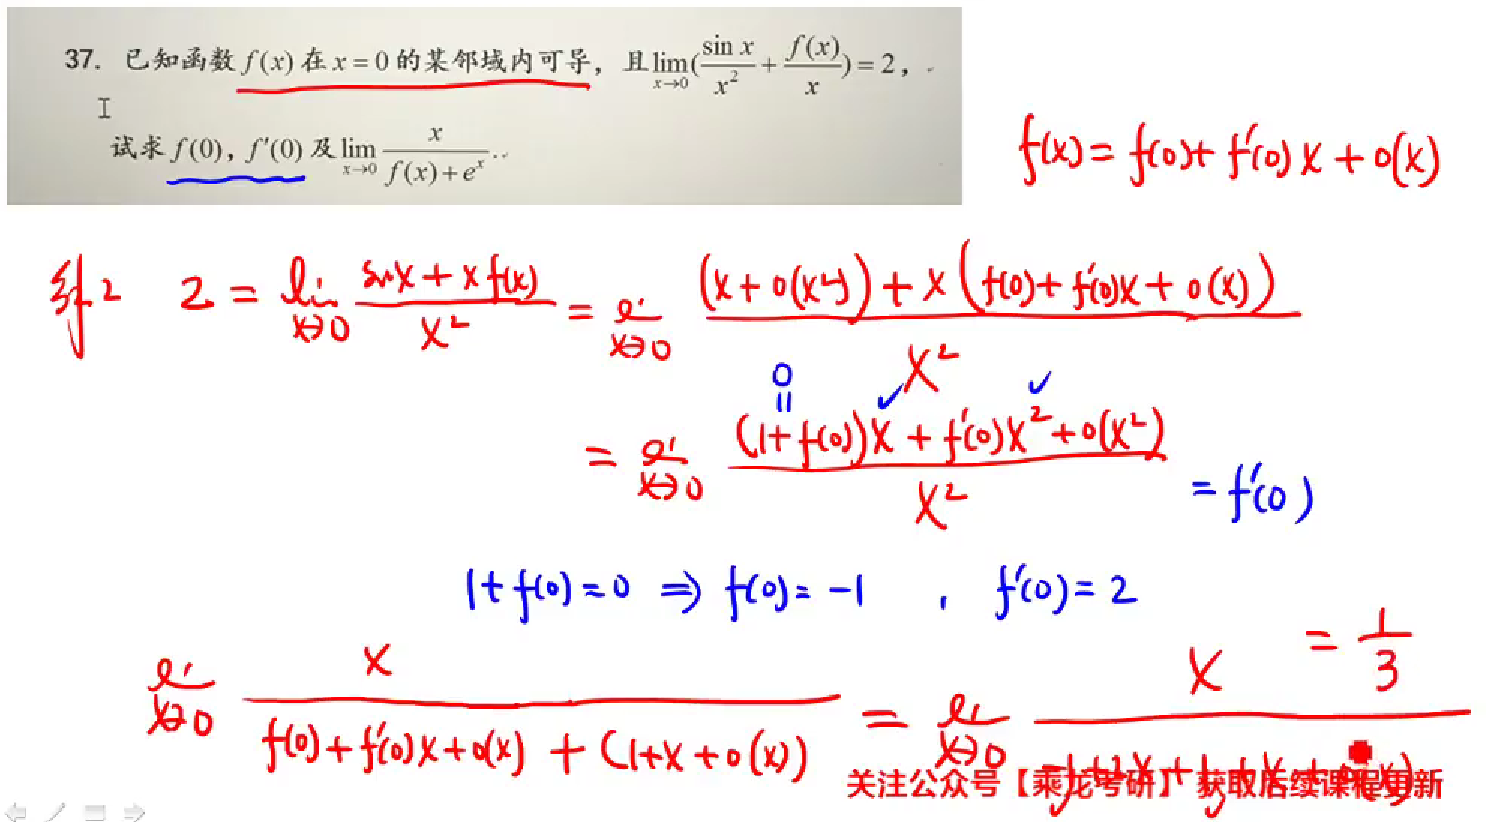 37. 已知函数 f(x) 在 x = 0 的某邻域内可导，且 lim_{x→0}(sin x / x² + f(x) / x) = 2，
试求 f(0)，f′(0) 及 lim_{x→0} x / (f(x) + eˣ)
f(x) = f(0) + f′(0)x + o(x)
2 = lim_{x→0} (sin x + x f(x)) / x² = lim_{x→0} ((x + o(x²)) + x(f(0) + f′(0)x + o(x))) / x²
0
=
= lim_{x→0} ((1 + f(0))x + f′(0)x² + o(x²)) / x² = f′(0)
1 + f(0) = 0 ⇒ f(0) = -1 , f′(0) = 2
lim_{x→0} x / (f(0) + f′(0)x + o(x) + (1 + x + o(x))) = lim_{x→0} x / (-1 + 2x + 1 + x + o(x)) = 1/3
关注公众号【乘龙考研】获取后续课程更新